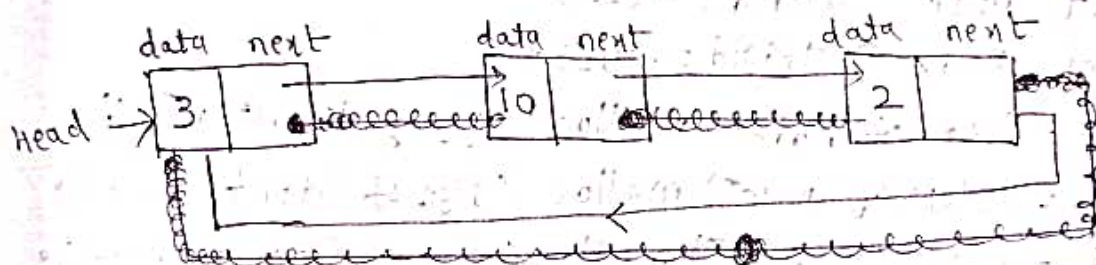 data next data next data next
Head 3 10 2